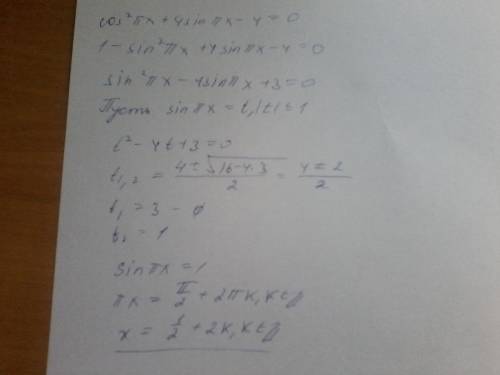 cos²πx + 4sinπx - 4 = 0
1 - sin²πx + 4sinπx - 4 = 0
sin²πx - 4sinπx + 3 = 0
Пусть sinπx = t, |t| ≤ 1
t² - 4t + 3 = 0
t₁,₂ = (4 ± √(16 - 4·3))/2 = (4 ± 2)/2
t₁ = 3 - ø
t₂ = 1
sinπx = 1
πx = π/2 + 2πk, k ∈ Z
x = 1/2 + 2k, k ∈ Z